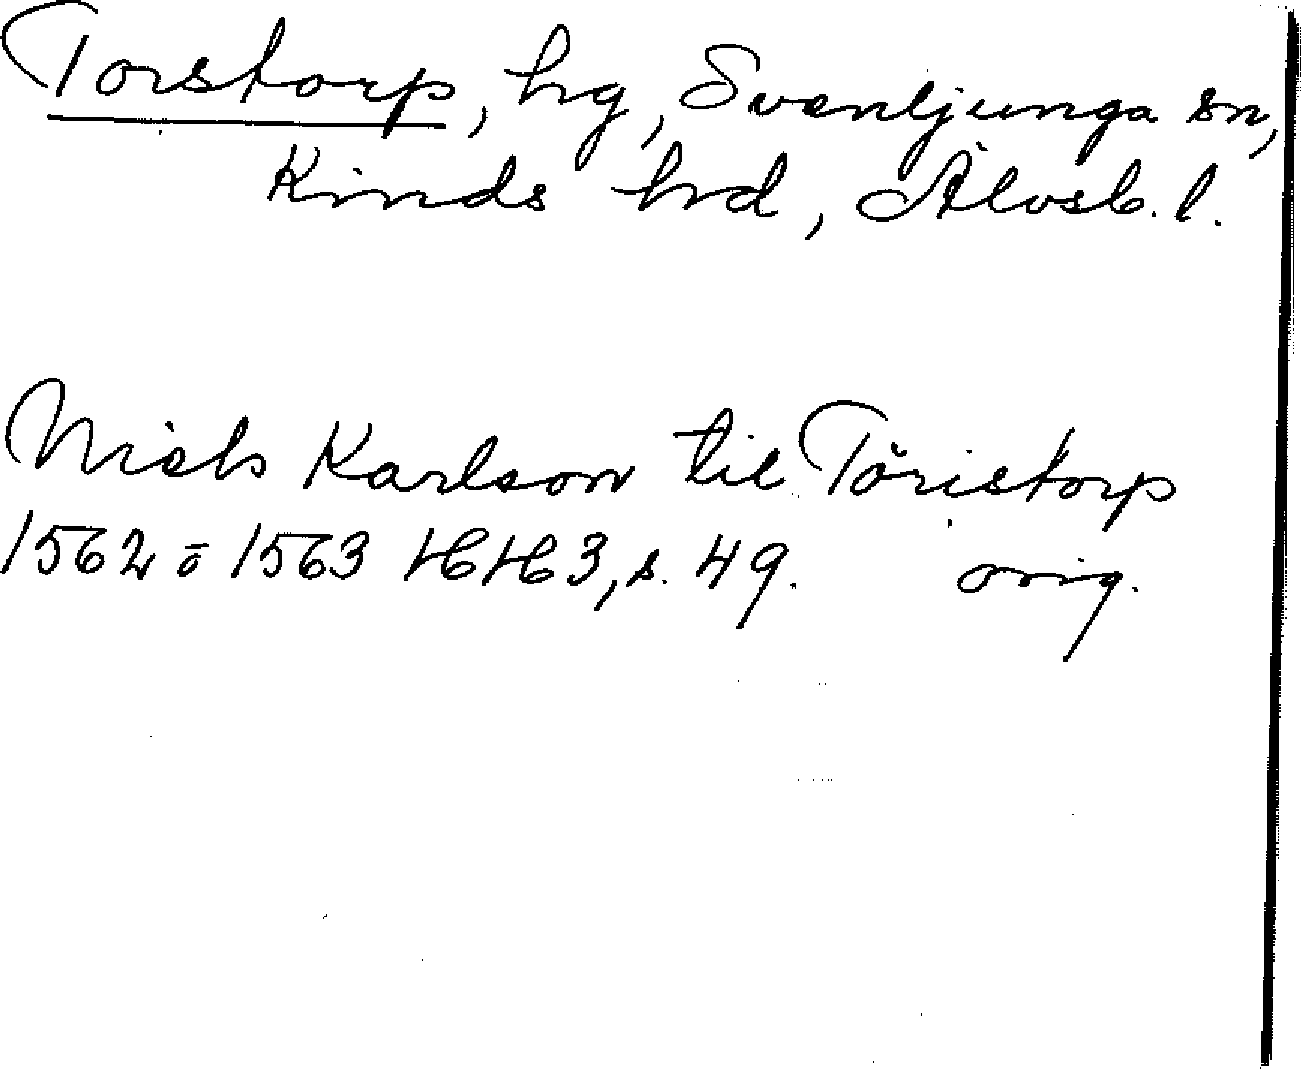 Torstorp, hg, Svenljunga sn,
Kinds hrd, Älvsb. l.
Niels Karlson til Töristorp
1562 ō 1563 HH 3, s. 49. orig.